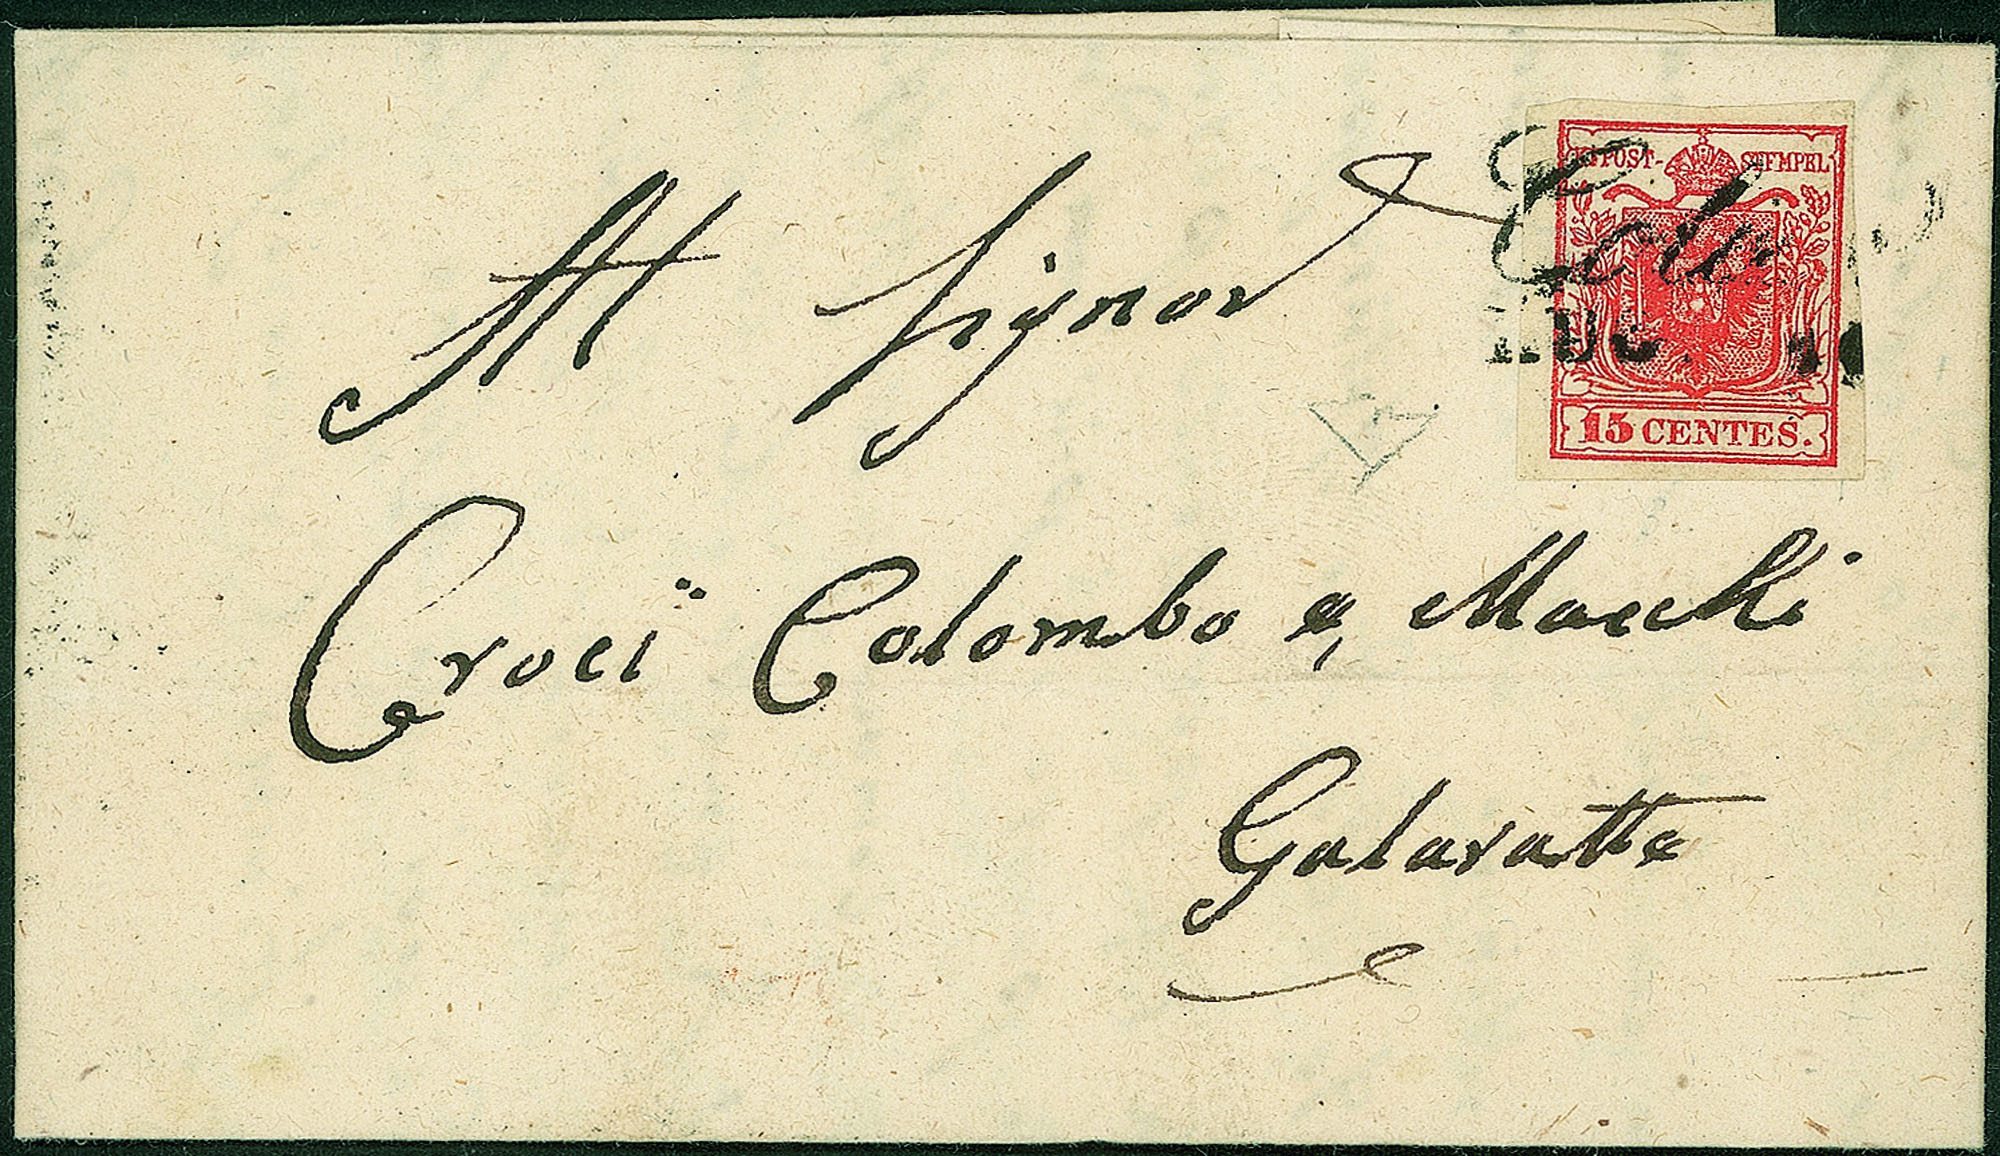 K.K. POST-STEMPEL
15 CENTES.
Al Signor
Croci Colombo e Macchi
Galaratte